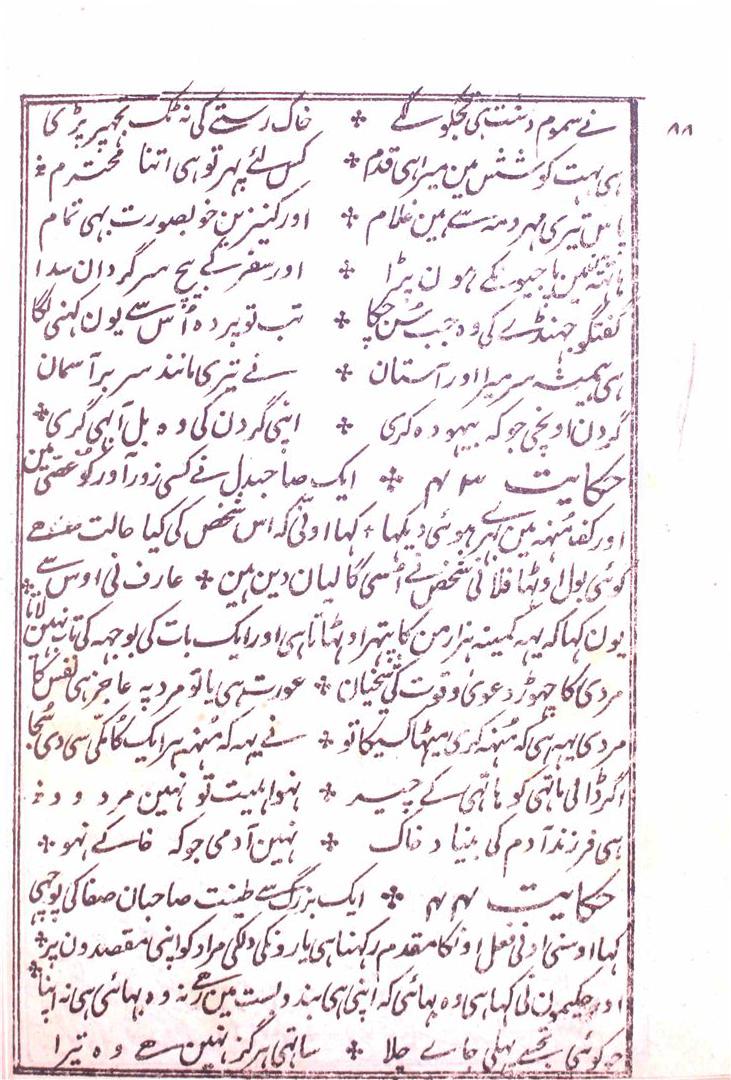 ۸۸
نے سموم دشت ہی تجکو لگے ٭ خاک رستے کی نہ ٹک تجھپر پڑی
ہی بہت کوشش مین میرا ہی قدم ٭ کس لئے پہر تو ہی اتنا محترم ٭
پاس تیری مہر و مہ سے ہین غلام ٭ اور کنیزین خوبصورت بہی تمام
ہاتہہ مین پاجیون کے ہون پڑا ٭ اور سفر کے بیچ سرگردان سدا
گفتگو جہنڈے کی وہ جب سُن چکا ٭ تب تو پردہ اُس سے یون کہنی لگا
ہی ہمیشہ سر میرا اور آستان ٭ نے تیری مانند سر بر آسمان
گردن اونچی جو کہ بیہودہ کری ٭ اپنی گردن کی وہ بل آ ہی گری ٭
حکایت ۴۳ ٭ ایک صاحبدل نے کسی زور آور کو غصّی مین
اور کف مُنہہ مین بہر ہوئی دیکہا ٭ کہا اونی کہ اس شخص کی کیا حالت ہے
کوئی بول اوٹہا فلانی شخص نے اسی گالیان دین ہین ٭ عارف نی اوس سے
یون کہا کہ یہہ کمینہ ہزار من کا پتہر اوٹہاتا ہی اور ایک بات کی بوجہہ کی تاب نہین لاتا ٭
مردی کا چہوڑ دعویٰ و قوت کی شیخیان ٭ عورت ہی یا تو مرد پہ عاجز ہی نفس کا
مردی یہہ ہی کہ مُنہہ کری میٹہا کسیکا تو ٭ نے یہہ کہ مُنہہ پر ایک کی مُکّی سی دی
اگر ڈالی ہاتہی کو ہاتہی کے چیر ٭ نہو اہلیت تو نہین مرد وہ ٭
ہی فرزند آدم کی بنیاد خاک ٭ نہین آدمی جو کہ خاکے نہو ٭
حکایت ۴۴ ٭ ایک بزرگ سے طینت صاحبان صفا کی پوچہی
کہا اوسنی ادنی فعل اونکا مقدم رکہنا ہی یارونکی دلکی مراد کو اپنی مقصدون پر ٭
اور حکیمون نی کہا ہی وہ بہائی کہ اپنی ہی بند و بست مین رہے نہ وہ بہائی ہی نہ اپنا ٭
جو کوئی تجہسے پہلی جاے چلا ٭ ساتہی ہرگز نہین ہے وہ تیرا